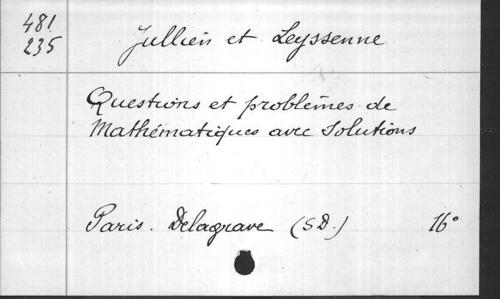 481
235
Jullien et Leyssenne
Questions et problèmes de
Mathématiques avec Solutions
Paris. Delagrave (S D.) 16°